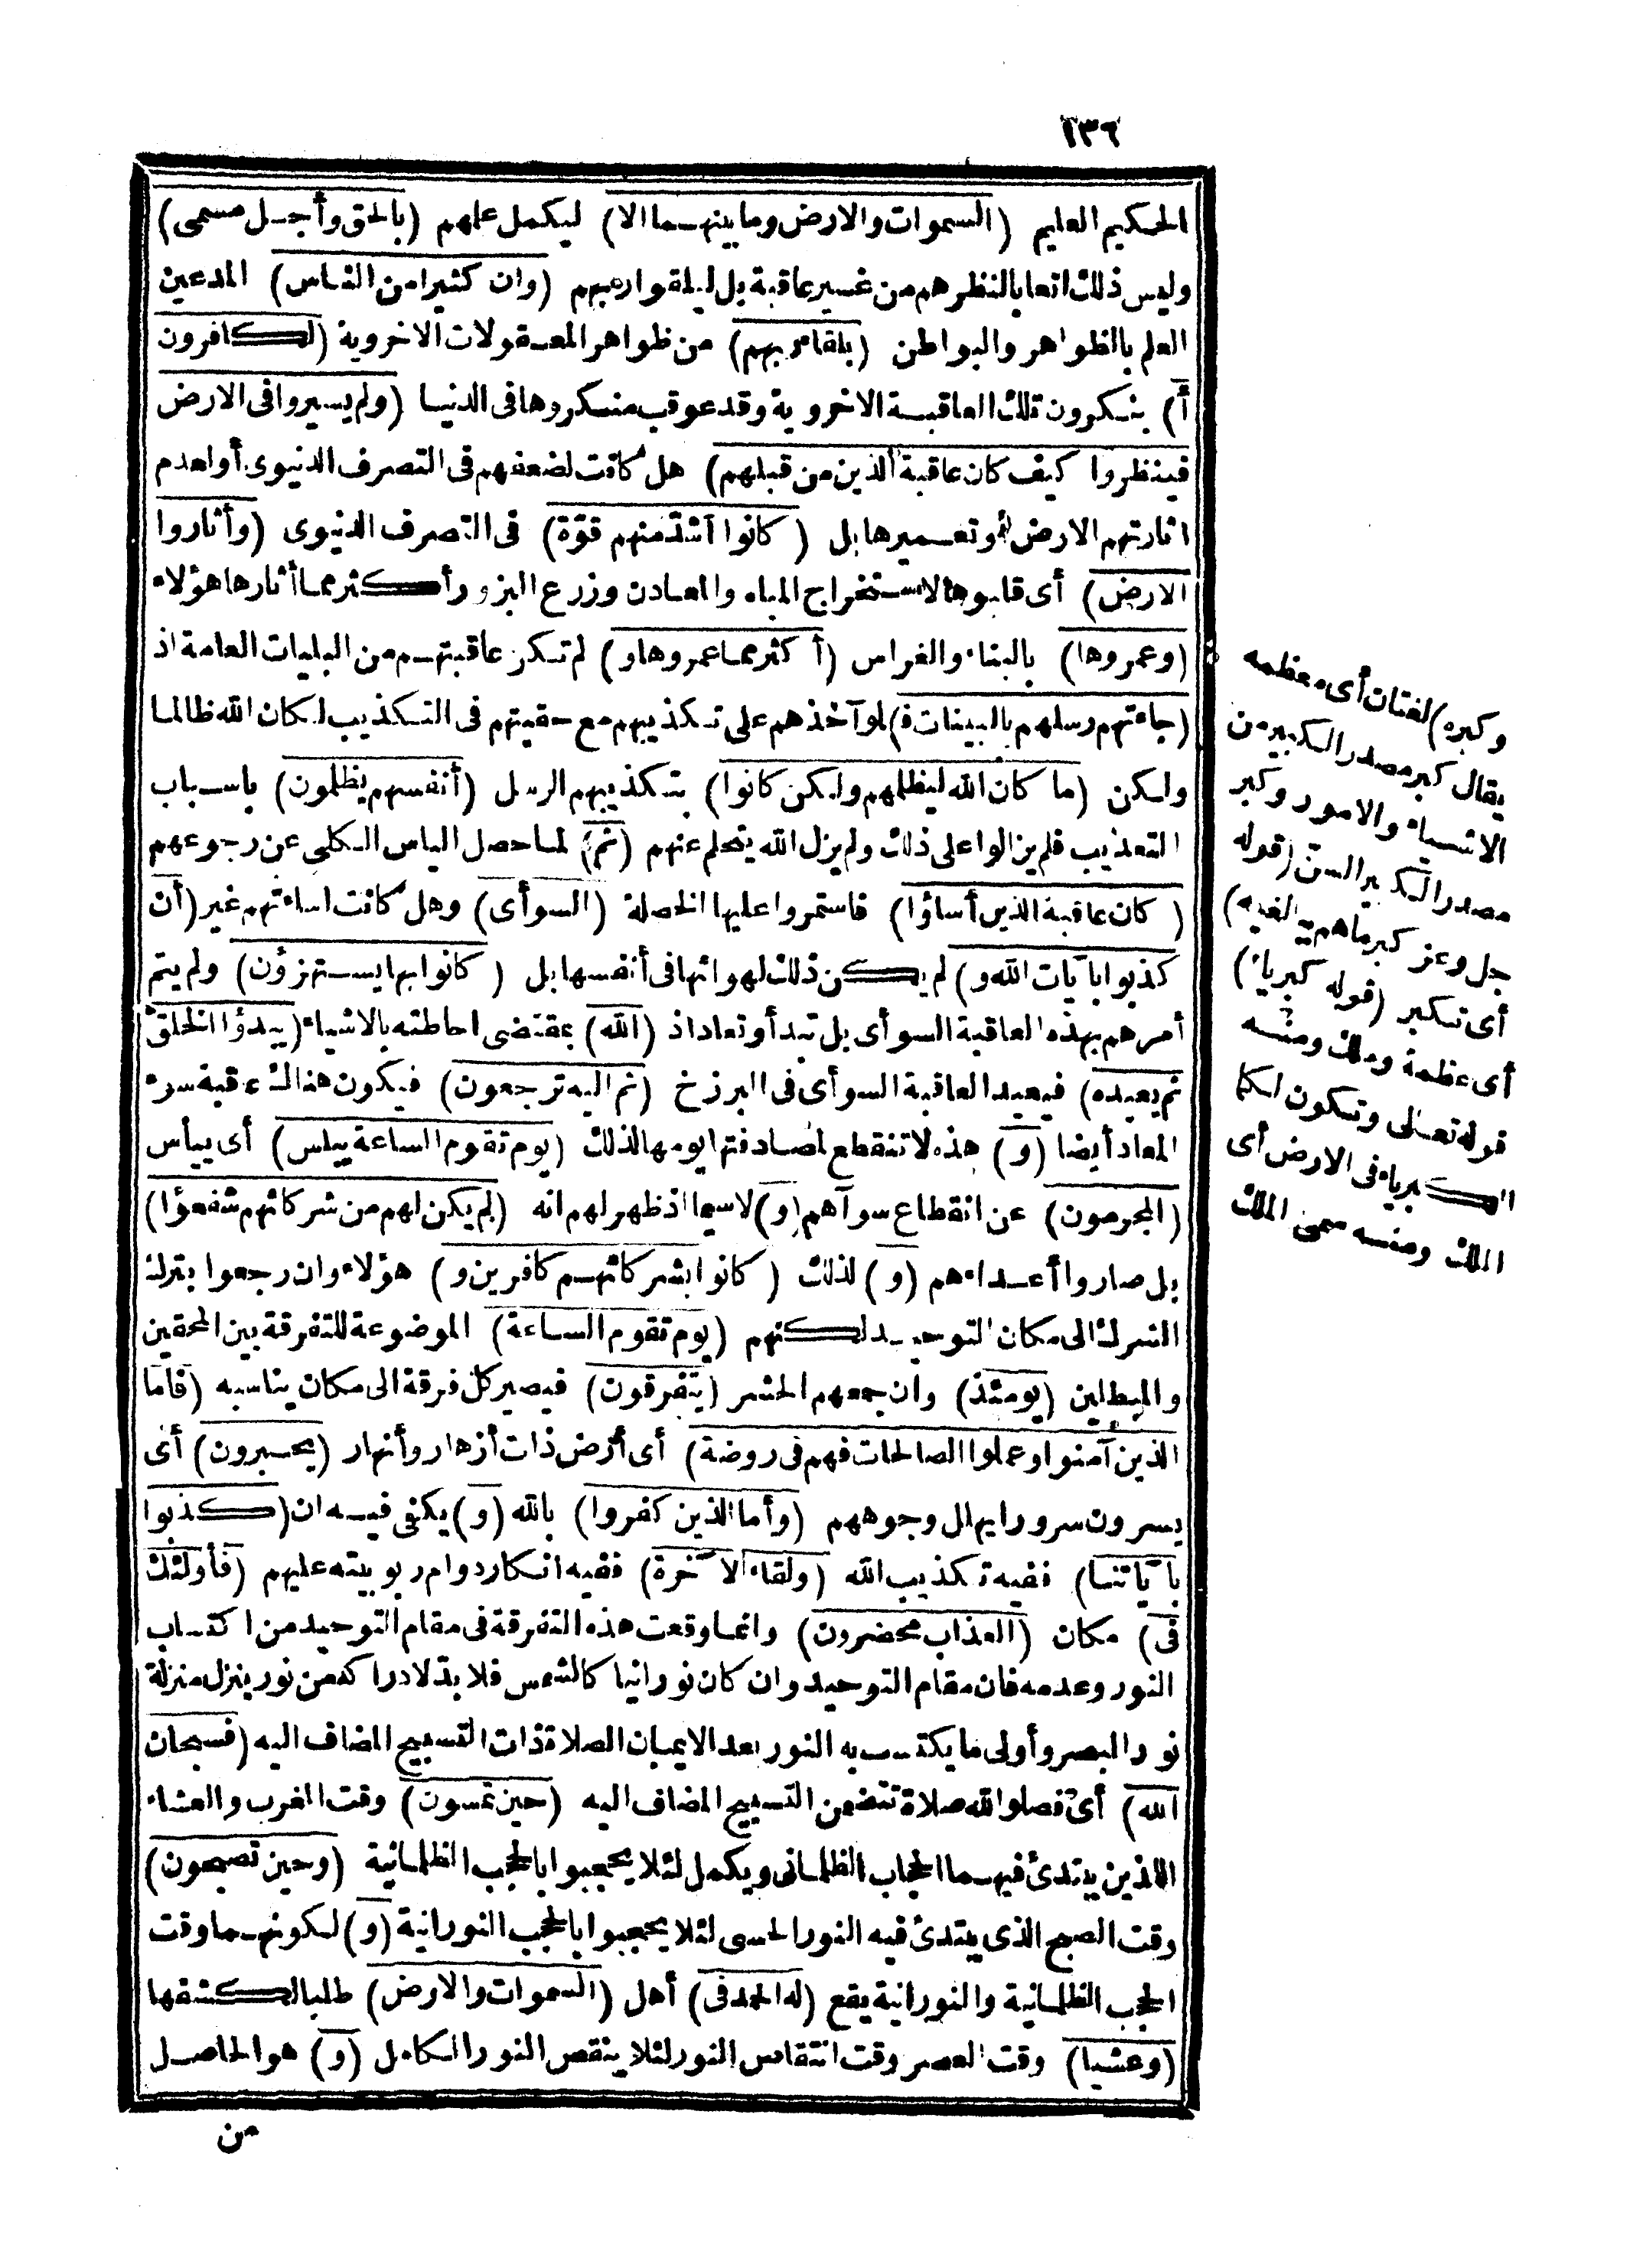 ١٣٦
الحكيم العليم (السموات والارض وما بينهما الا) ليكمل علمهم (بالحق وأجل مسمى)
وليس ذلك اتعابا لنظرهم من غير عاقبة بل ليلقوا ربهم (وان كثيرا من الناس) المدعين
العلم بالظواهر والبواطن (بلقاء ربهم) من ظواهر المعقولات الاخروية (لكافرون
أ) ينكرون تلك العاقبة الاخروية وقد عوقب منكروها فى الدنيا (ولم يسيروا فى الارض
فينظروا كيف كان عاقبة الذين من قبلهم) هل كانت لضعفهم فى التصرف الدنيوى أو لعدم
اثارتهم الارض أو تعميرها بل (كانوا أشدّ منهم قوّة) فى التصرف الدنيوى (وأثاروا
الارض) أى قلبوها لاستخراج المياه والمعادن وزرع البزور وأكثر مما أثارها هؤلاء
(وعمروها) بالبناء والغراس (أكثر مما عمروها و) لم تكن عاقبتهم من البليات العامة اذ
(جاءتهم رسلهم بالبينات ف) لو آخذهم على تكذيبهم مع حقيتهم فى التكذيب لكان الله ظالما
ولكن (ما كان الله ليظلمهم ولكن كانوا) بتكذيبهم الرسل (أنفسهم يظلمون) باسباب
التعذيب فلم يزالوا على ذلك ولم يزل الله يحلم عنهم (ثم) لما حصل الياس الكلى عن رجوعهم
(كان عاقبة الذين أساؤا) فاستمروا عليها الخصلة (السوأى) وهل كانت اساءتهم غير (أن
كذبوا بآيات الله و) لم يكن ذلك لهوانها فى أنفسها بل (كانوا بها يستهزؤن) ولم يتم
أمرهم بهذه العاقبة السوأى بل تبدأ وتعاد اذ (الله) بمقتضى احاطته بالاشياء (يبدؤا الخلق
ثم يعيده) فيعيد العاقبة السوأى فى البرزخ (ثم اليه ترجعون) فيكون هناك عاقبة سوء
المعاد أيضا (و) هذه لا تنقطع لمصادفتها يومها لذلك (يوم تقوم الساعة يبلس) أى ييأس
(المجرمون) عن انقطاع سوآهم (و) لا سيما اذ ظهر لهم انه (لم يكن لهم من شركائهم شفعؤا)
بل صاروا أعداءهم (و) لذلك (كانوا بشركائهم كافرين و) هؤلاء وان رجعوا بترك
الشرك الى مكان التوحيد لكنهم (يوم تقوم الساعة) الموضوعة للتفرقة بين المحقين
والمبطلين (يومئذ) وان جمعهم الحشر (يتفرقون) فيصير كل فرقة الى مكان يناسبه (فأما
الذين آمنوا وعملوا الصالحات فهم فى روضة) أى أرض ذات أزهار وأنهار (يحبرون) أى
يسرون سرورا يهلل وجوههم (وأما الذين كفروا) بالله (و) يكفى فيه ان (كذبوا
بآياتنا) ففيه تكذيب الله (ولقاء الآخرة) ففيه انكار دوام ربوبيته عليهم (فأولئك
فى) مكان (العذاب محضرون) وانما وقعت هذه التفرقة فى مقام التوحيد من اكتساب
النور وعدمه فان مقام التوحيد وان كان نورانيا كالشمس فلا بدّ لادراكه من نور ينزل منزلة
نور البصر وأولى ما يكتسب به النور بعد الايمان الصلاة ذات التسبيح المضاف اليه (فسبحان
الله) أى فصلوا لله صلاة تتضمن التسبيح المضاف اليه (حين تمسون) وقت المغرب والعشاء
اللذين يبتدئ فيهما الحجاب الظلمانى ويكمل لئلا يحجبوا بالحجب الظلمانية (وحين تصبحون)
وقت الصبح الذى يبتدئ فيه النور الحسى لئلا يحجبوا بالحجب النورانية (و) لكونهما وقت
الحجب الظلمانية والنورانية يقع (له الحمد فى) أهل (السموات والارض) طلبا لكشفها
(وعشيا) وقت العصر وقت انتقاص النور لئلا ينقص النور الكامل (و) هو الحاصل
من
وكبره) لغتان أى معظمه
يقال كبر مصدر الكبير من
الاشياء والامور وكبر
مصدر الكبير السن (قوله
جل وعز كبر ما هم ببالغيه)
أى تكبر (قوله كبرياء)
أى عظمة وملك ومنه
قوله تعالى وتكون لكما
الكبرياء فى الارض أى
الملك ومنه سمى الملك